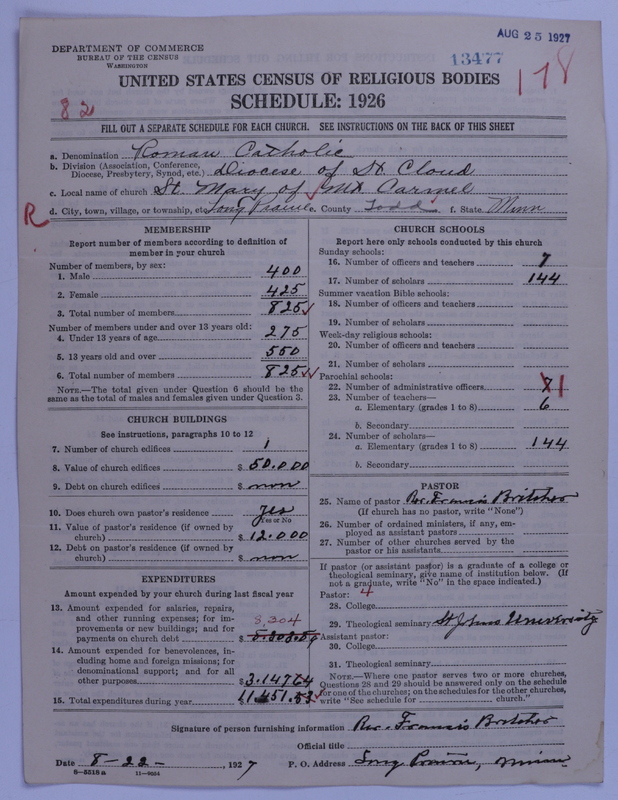 AUG 25 1927
DEPARTMENT OF COMMERCE
BUREAU OF THE CENSUS
WASHINGTON
13477
178
UNITED STATES CENSUS OF RELIGIOUS BODIES
82
SCHEDULE: 1926
FILL OUT A SEPARATE SCHEDULE FOR EACH CHURCH. SEE INSTRUCTIONS ON THE BACK OF THIS SHEET
a. Denomination Roman Catholic
b. Division (Association, Conference, Diocese, Presbytery, Synod, etc.) Diocese of St Cloud
c. Local name of church St. Mary of Mt Carmel
R
d. City, town, village, or township, etc Long Prairie e. County Todd f. State Minn
MEMBERSHIP
Report number of members according to definition of
member in your church
Number of members, by sex:
1. Male 400
2. Female 425
3. Total number of members 825
Number of members under and over 13 years old:
4. Under 13 years of age 275
5. 13 years old and over 550
6. Total number of members 825
NOTE.—The total given under Question 6 should be
same as the total of males and females given under Question 3.
CHURCH BUILDINGS
See instructions, paragraphs 10 to 12
7. Number of church edifices 1
8. Value of church edifices $ 50.000
9. Debt on church edifices $ non
10. Does church own pastor's residence yes
Yes or No
11. Value of pastor's residence (if owned by
church) $ 12.000
12. Debt on pastor's residence (if owned by
church) $ non
EXPENDITURES
Amount expended by your church during last fiscal year
13. Amount expended for salaries, repairs,
and other running expenses; for im-
provements or new buildings; and for 8,304
payments on church debt $
14. Amount expended for benevolences, in-
cluding home and foreign missions; for
denominational support; and for all
other purposes $ 3.147
15. Total expenditures during year $ 11.451.53
CHURCH SCHOOLS
Report here only schools conducted by this church
Sunday schools:
16. Number of officers and teachers 7
17. Number of scholars 144
Summer vacation Bible schools:
18. Number of officers and teachers
19. Number of scholars
Week-day religious schools:
20. Number of officers and teachers
21. Number of scholars
Parochial schools:
22. Number of administrative officers 1
23. Number of teachers—
a. Elementary (grades 1 to 8) 6
b. Secondary
24. Number of scholars—
a. Elementary (grades 1 to 8) 144
b. Secondary
PASTOR
25. Name of pastor Rev. Francis
(If church has no pastor, write "None")
26. Number of ordained ministers, if any, em-
ployed as assistant pastors
27. Number of other churches served by the
pastor or his assistants
If pastor (or assistant pastor) is a graduate of a college or
theological seminary, give name of institution below. (If
not a graduate, write "No" in the space indicated.)
Pastor: 4
28. College
29. Theological seminary St Johns University
Assistant pastor:
30. College
31. Theological seminary
NOTE.—Where one pastor serves two or more churches,
Questions 28 and 29 should be answered only on the schedule
for one of the churches; on the schedules for the other churches,
write "See schedule for church."
Signature of person furnishing information Rev. Francis
Official title
Date 8-22-, 1927 P. O. Address Long Prairie, Minn
8-5518a 11-9054